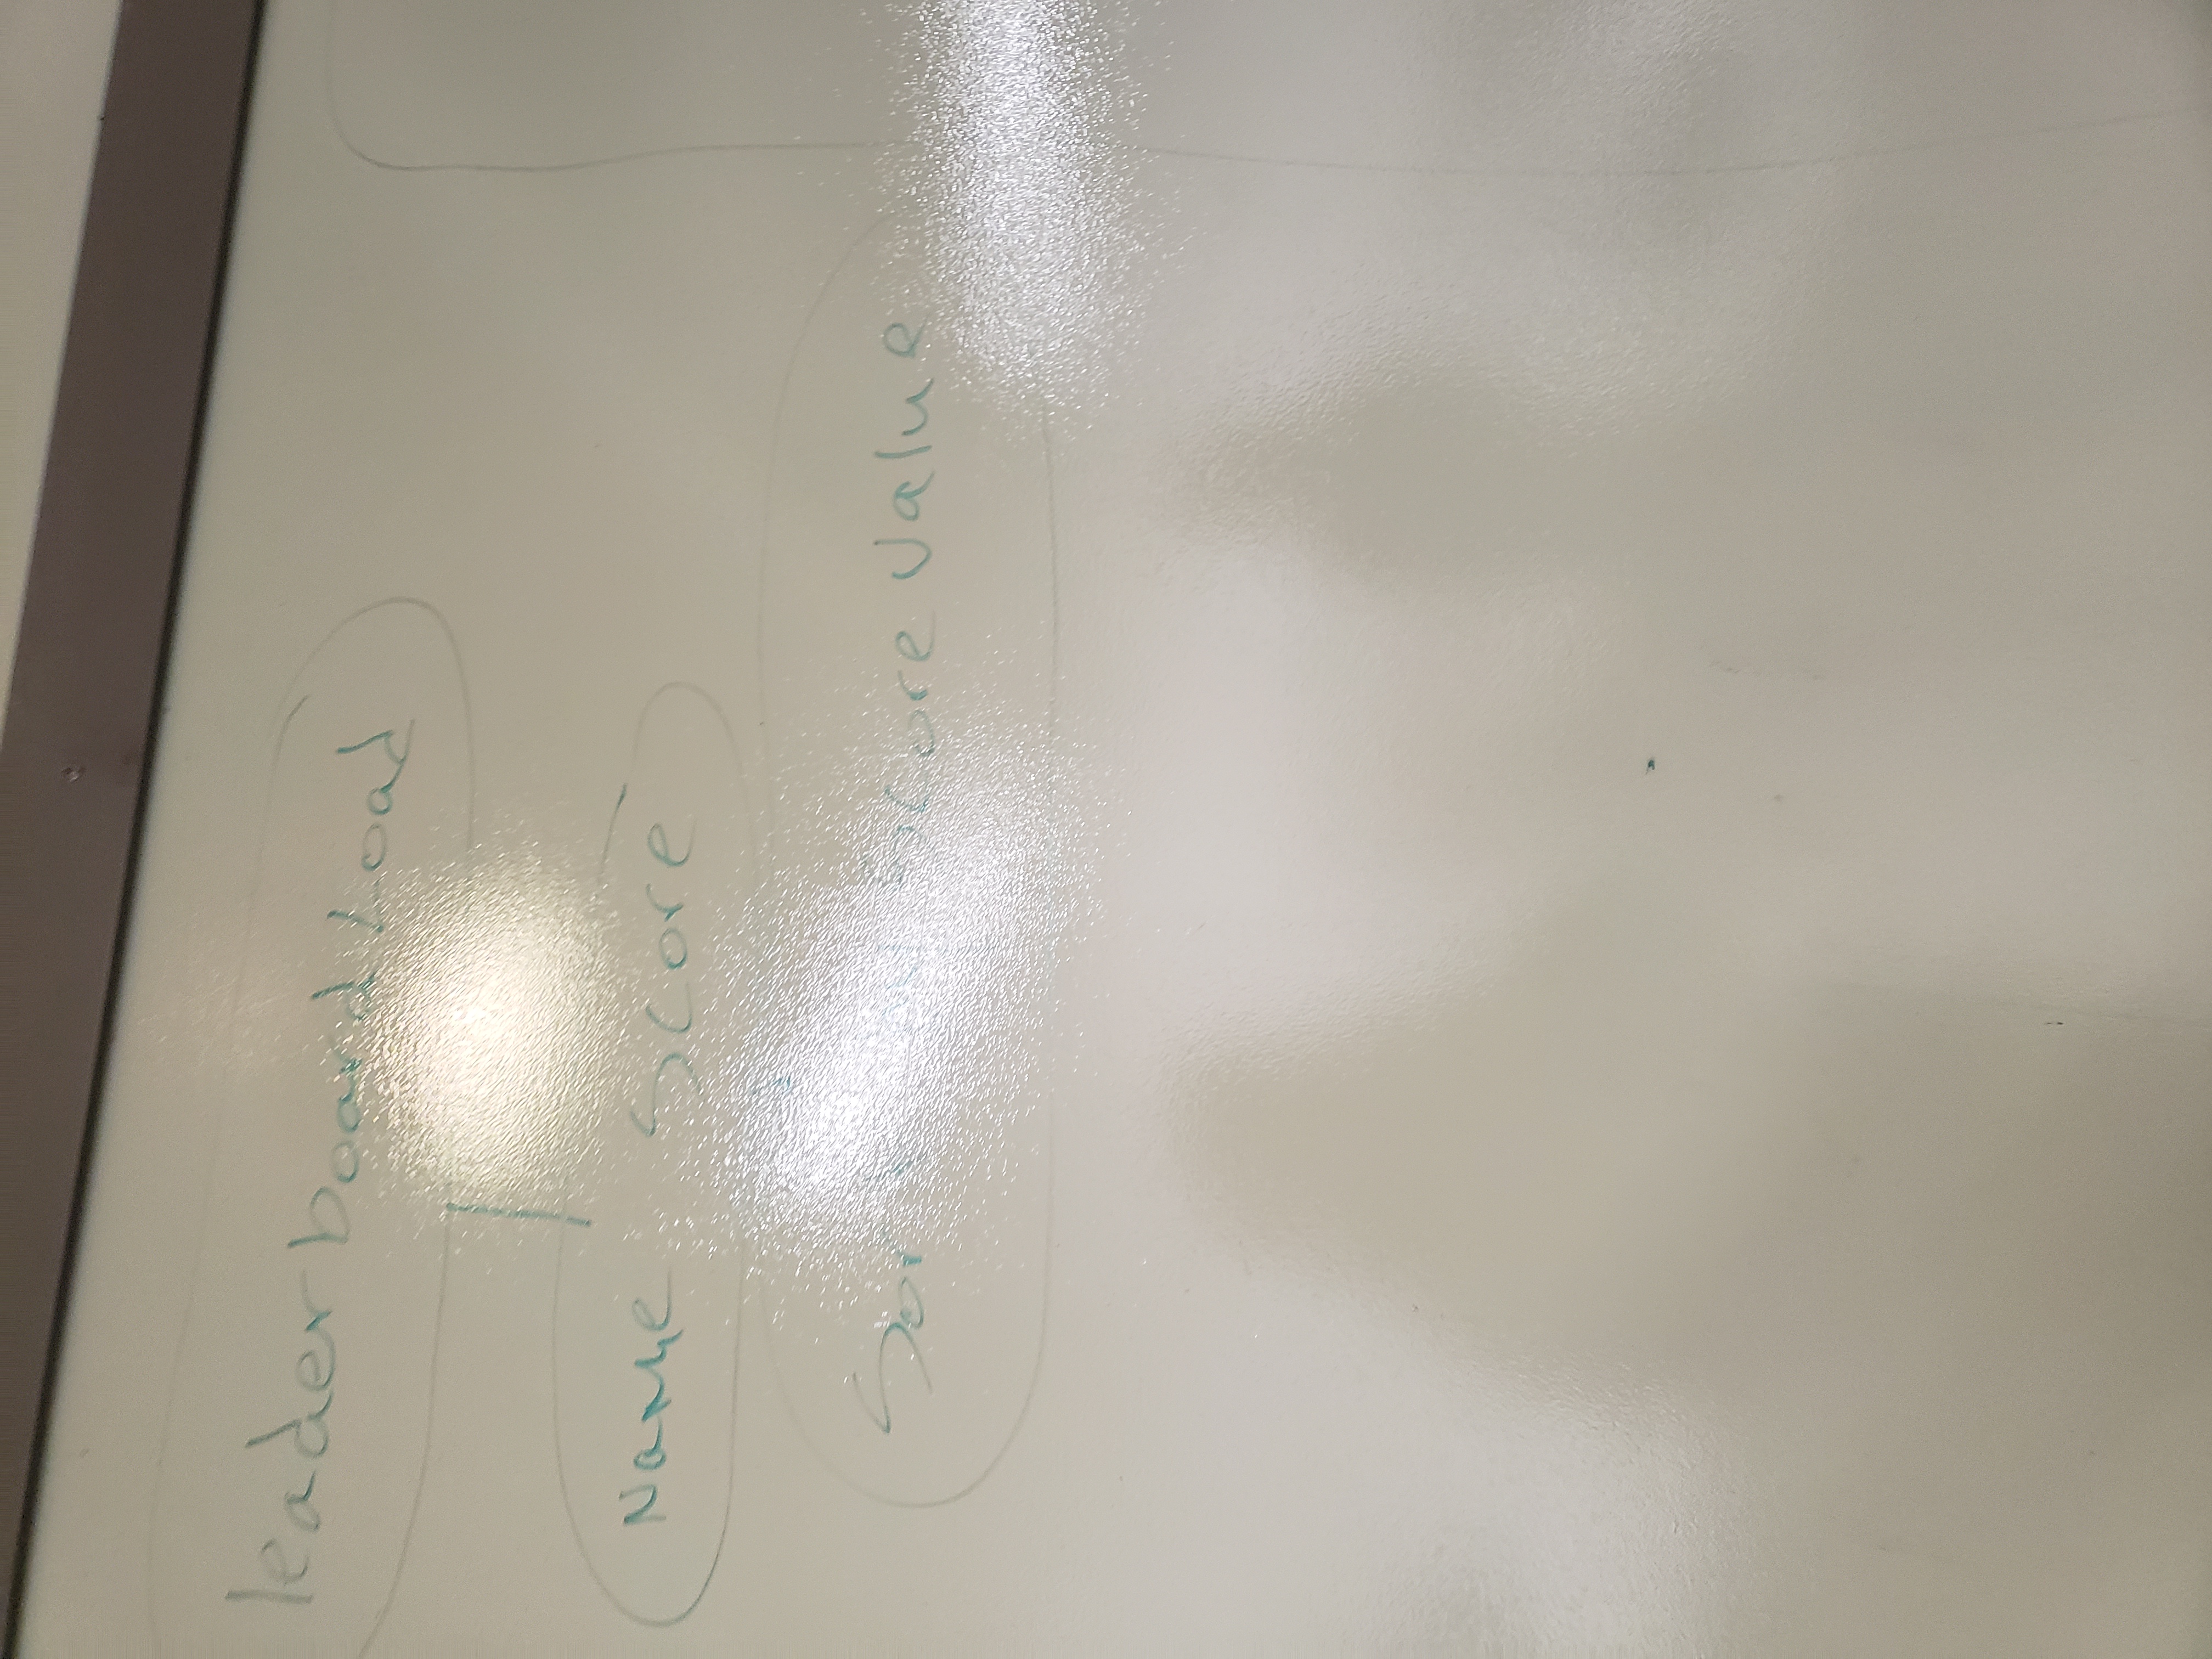 leaderboard Load
Name Score
Score Value